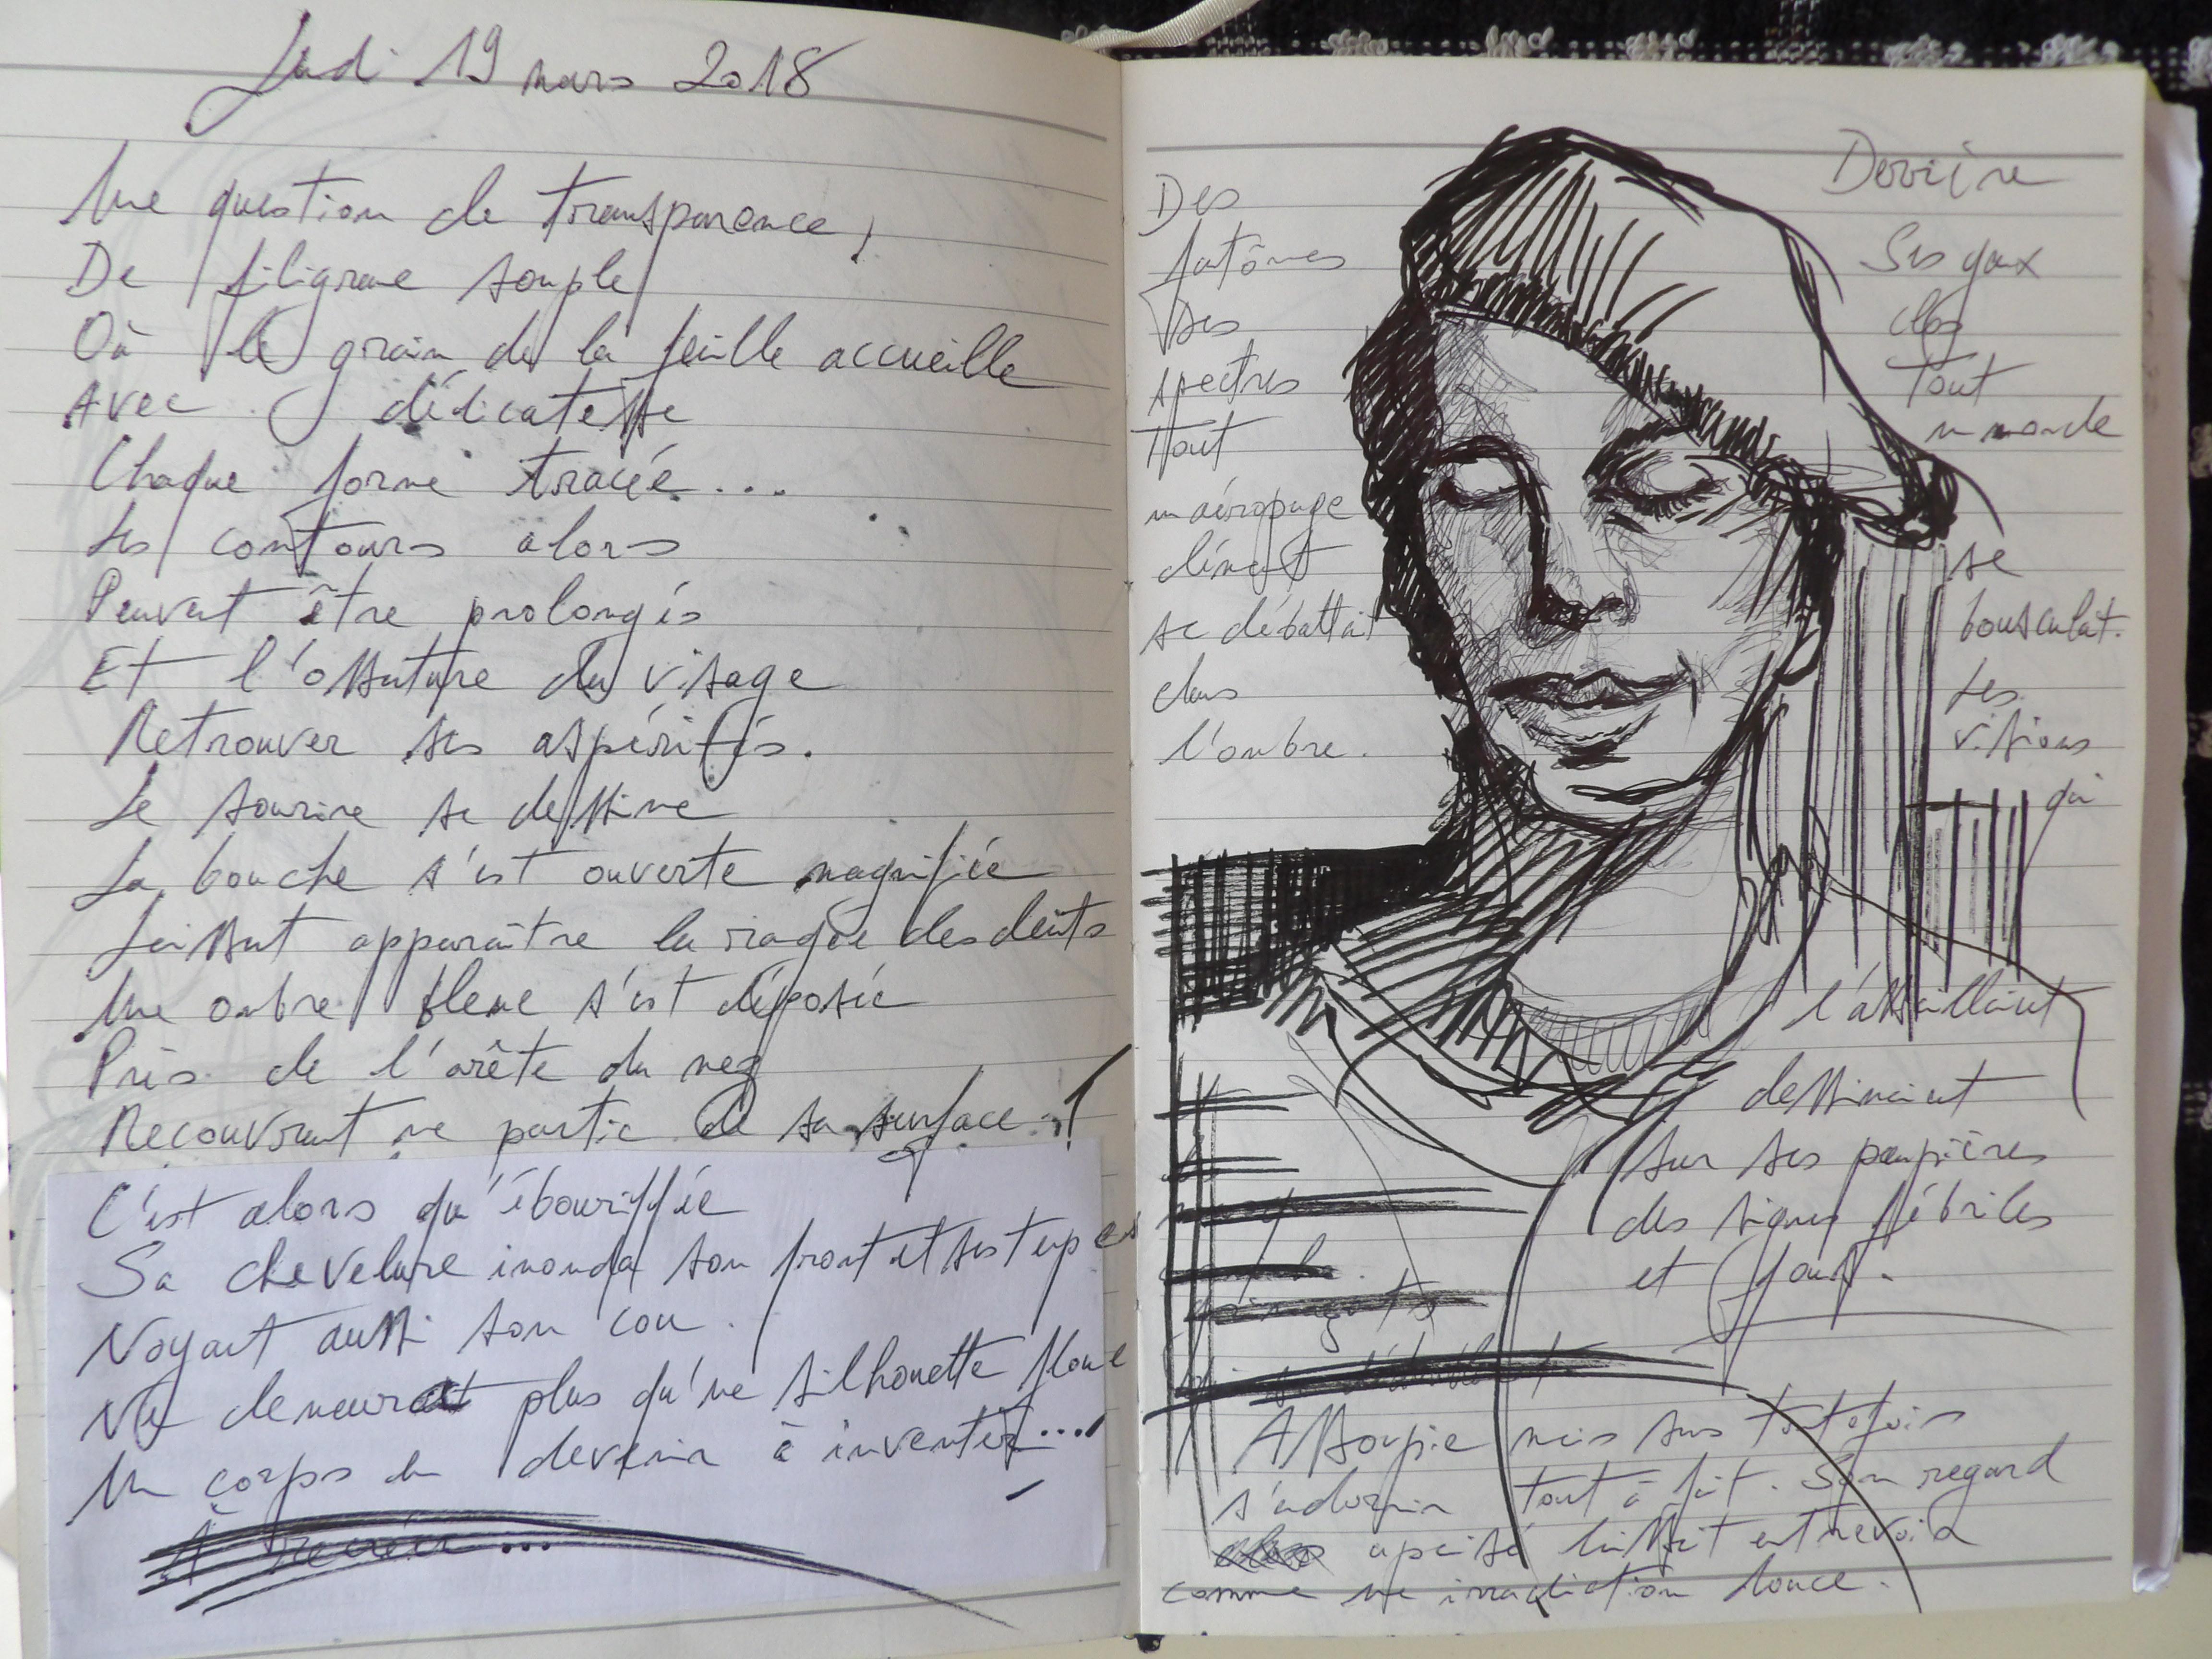 Jeudi 19 mars 2018
Une question de transparence,
De filigrane souple
Où le grain de la feuille accueille
Avec délicatesse
Chaque forme tracée...
Les contours alors
Peuvent être prolongés
Et l'ossature du visage
Retrouver ses aspérités.
Le sourire se dessine
La bouche s'est ouverte magnifiée
Laissant apparaître la rangée des dents
Une ombre bleue s'est déposée
Près de l'arête du nez
Recouvrant une partie de sa surface.
C'est alors qu'ébouriffée
Sa chevelure inonda son front et ses tempes
Noyant aussi son cou.
Ne demeurait plus qu'une silhouette floue
Un corps en devenir à inventer...
Des
fantômes
Des
spectres
Tout
un aréopage
dément
se débattait
dans
l'ombre.
Derrière
Ses yeux
clos
Tout
un monde
se
bousculait.
Les
visions
qui
l'assaillaient
dessinaient
sur ses paupières
des signes fébriles
et flous.
Assoupie mais sans toutefois
s'endormir tout à fait. Son regard
apaisé laissait entrevoir
comme une irradiation douce.